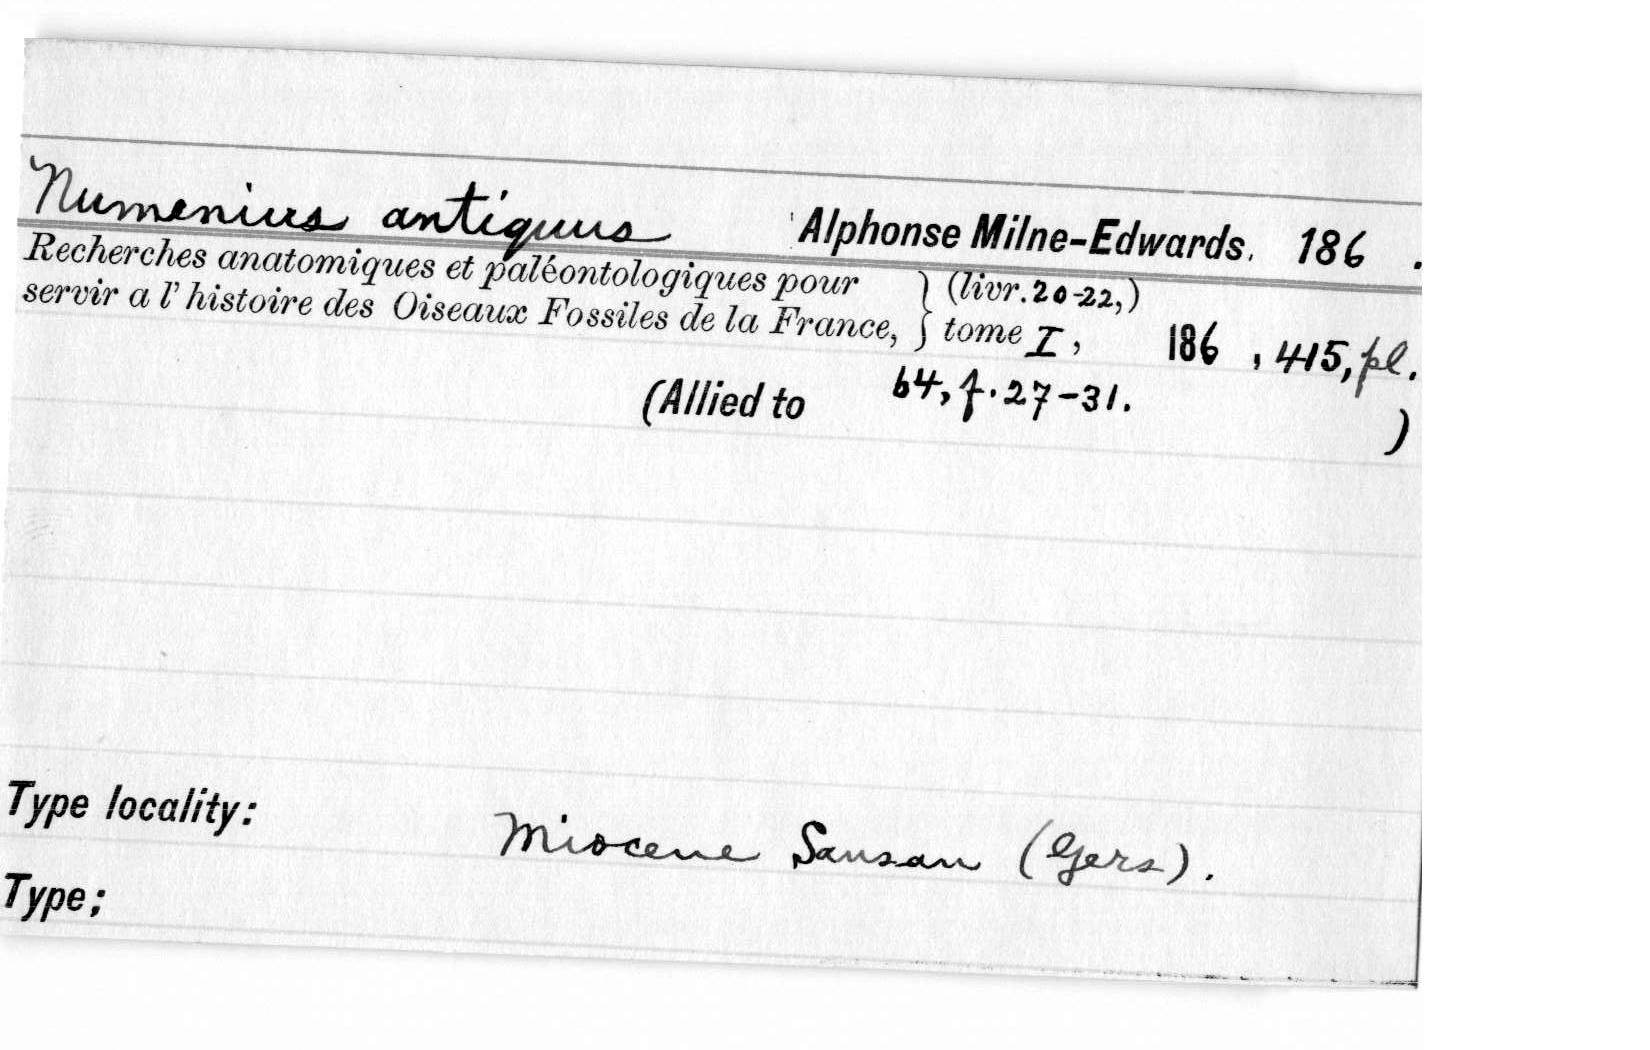 Numenius antiquus Alphonse Milne-Edwards. 186 .
Recherches anatomiques et paléontologiques pour } (livr. 20-22,)
servir a l' histoire des Oiseaux Fossiles de la France, } tome I, 186 , 415, pl.
(Allied to 64, f. 27-31. )
Type locality: Miocene Sansan (Gers).
Type;